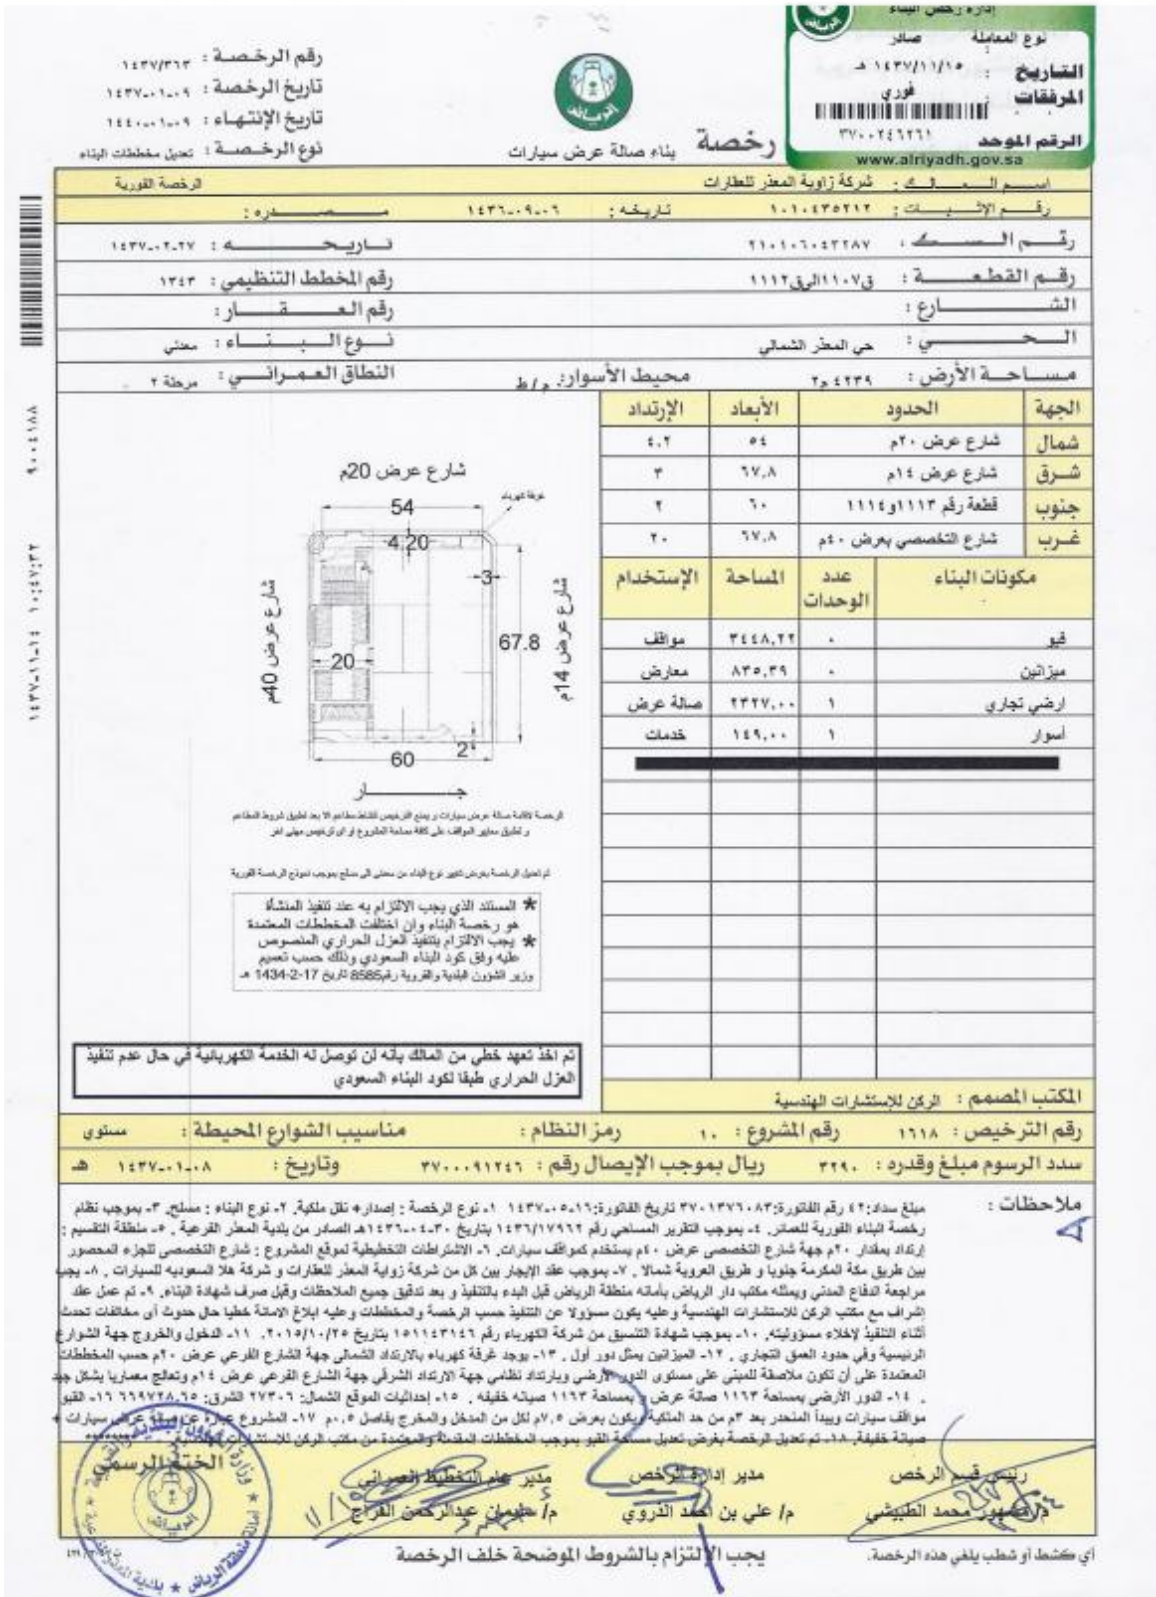 إدارة رخص البناء
نوع المعاملة صادر
التاريخ : ١٤٣٧/١١/١٥ هـ
المرفقات : فوري
الرقم الموحد ٣٧٠٠٢٤٦٢٦١
www.alriyadh.gov.sa
الرياض
رخصة بناء صالة عرض سيارات
رقم الرخصة : ١٤٣٧/٣٦٣
تاريخ الرخصة : ١٤٣٧-٠١-٠٩
تاريخ الإنتهاء : ١٤٤٠-٠١-٠٩
نوع الرخصة : تعديل مخططات البناء
اسم المالك : شركة زاوية المعذر للعقارات الرخصة الفورية
رقم الإثبات : ١٠١٠٤٣٥٢١٢ تاريخه : ١٤٣٦-٠٩-٠٦ مصدره :
رقم الصك : ٢١٠١٠٦٠٤٣٢٨٧ تاريخه : ١٤٣٧-٠٢-٢٧
رقم القطعة : ق١١٠٧الى ق١١١٢ رقم المخطط التنظيمي : ١٣٤٣
الشارع : رقم العقار :
الحي : حي المعذر الشمالي نوع البناء : معدني
مساحة الأرض : ٤٢٣٩ م٢ محيط الأسوار: م/ط النطاق العمراني : مرحلة ٢
الجهة الحدود الأبعاد الإرتداد
شمال شارع عرض ٢٠م ٥٤ ٤.٢
شرق شارع عرض ١٤م ٦٧.٨ ٣
جنوب قطعة رقم ١١١٣و١١١٤ ٦٠ ٢
غرب شارع التخصصي بعرض ٤٠م ٦٧.٨ ٢٠
مكونات البناء عدد الوحدات المساحة الإستخدام
قبو ٠ ٣٤٤٨,٢٢ مواقف
ميزانين ٠ ٨٣٥,٣٩ معارض
ارضي تجاري ١ ٢٣٢٧,٠٠ صالة عرض
أسوار ١ ١٤٩,٠٠ خدمات
شارع عرض 20م
غرفة كهرباء
54
4.20
3
شارع عرض 40م
20
67.8
شارع عرض 14م
2
60
جـــار
الرخصة لاقامة صالة عرض سيارات و يمنع الترخيص لنشاط مطاعم الا بعد تطبيق شروط المطاعم
و تطبيق معايير المواقف على كافة مساحة المشروع او اي ترخيص مهني اخر
تم تعديل الرخصة بغرض تغيير نوع البناء من معدني الى مسلح بموجب نموذج الرخصة الفورية
* المستند الذي يجب الالتزام به عند تنفيذ المنشأة
هو رخصة البناء وان اختلفت المخططات المعتمدة
* يجب الالتزام بتنفيذ العزل الحراري المنصوص
عليه وفق كود البناء السعودي وذلك حسب تعميم
وزير الشؤون البلدية والقروية رقم8585 تاريخ 17-2-1434 هـ
تم اخذ تعهد خطي من المالك بأنه لن توصل له الخدمة الكهربائية في حال عدم تنفيذ
العزل الحراري طبقا لكود البناء السعودي
المكتب المصمم : الركن للإستشارات الهندسية
رقم الترخيص : ١٦١٨ رقم المشروع : ١٠ رمز النظام : مناسيب الشوارع المحيطة : مستوي
سدد الرسوم مبلغ وقدره : ٣٢٩٠ ريال بموجب الإيصال رقم : ٣٧٠٠٠٩١٢٤٦ وتاريخ : ١٤٣٧-٠١-٠٨ هـ
ملاحظات : مبلغ سداد:٤٢ رقم الفاتورة:٣٧٠١٣٧٦٠٨٣ تاريخ الفاتورة:١٦-٠٥-١٤٣٧ ١- نوع الرخصة : إصدار+ نقل ملكية. ٢- نوع البناء : مسلح. ٣- بموجب نظام
رخصة البناء الفورية للعمائر. ٤- بموجب التقرير المساحي رقم ١٤٣٦/١٧٩٦٢ بتاريخ ٣٠-٠٤-١٤٣٦هـ الصادر من بلدية المعذر الفرعية . ٥- منطقة التقسيم :
إرتداد بمقدار ٢٠م جهة شارع التخصصي عرض ٤٠م يستخدم كمواقف سيارات. ٦- الاشتراطات التخطيطية لموقع المشروع : شارع التخصصي للجزء المحصور
بين طريق مكة المكرمة جنوبا و طريق العروبة شمالا . ٧- بموجب عقد الإيجار بين كل من شركة زوايه المعذر للعقارات و شركة هلا السعوديه للسيارات . ٨- يجب
مراجعة الدفاع المدني ويمثله مكتب دار الرياض بأمانه منطقة الرياض قبل البدء بالتنفيذ و بعد تدقيق جميع الملاحظات وقبل صرف شهادة البناء. ٩- تم عمل عقد
اشراف مع مكتب الركن للاستشارات الهندسية وعليه يكون مسؤولا عن التنفيذ حسب الرخصة والمخططات وعليه ابلاغ الامانة خطيا حال حدوث أى مخالفات تحدث
أثناء التنفيذ لإخلاء مسؤوليته. ١٠- بموجب شهادة التنسيق من شركة الكهرباء رقم ١٥١١٤٣١٤٦ بتاريخ ٢٠١٥/١٠/٢٥. ١١- الدخول والخروج جهة الشوارع
الرئيسية وفي حدود العمق التجاري . ١٢- الميزانين يمثل دور أول . ١٣- يوجد غرفة كهرباء بالارتداد الشمالى جهة الشارع الفرعي عرض ٢٠م حسب المخططات
المعتمدة على أن تكون ملاصقة للمبنى على مستوى الدور الأرضي وبارتداد نظامي جهة الارتداد الشرقي جهة الشارع الفرعي عرض ١٤م وتعالج معماريا بشكل جيد
. ١٤- الدور الأرضي بمساحة ١١٦٣ صالة عرض و بمساحة ١١٦٣ صيانه خفيفه . ١٥- إحداثيات الموقع الشمال: ٢٧٣٠٦ الشرق: ٦٦٩٧٢٨.٦٥ ١٦- القبو
مواقف سيارات ويبدأ المنحدر بعد ٣م من حد الملكية ويكون بعرض ٧,٥م لكل من المدخل والمخرج بفاصل ٠,٥م ١٧- المشروع عبارة عن صالة عرض سيارات +
صيانة خفيفة. ١٨- تم تعديل الرخصة بغرض تعديل مساحة القبو بموجب المخططات المقدمة والمعتمدة من مكتب الركن
رئيس قسم الرخص مدير إدارة الرخص مدير عام التخطيط العمراني الختم الرسمي
م/ مشهور محمد الطبيشي م/ علي بن أحمد الذروي م/ سليمان عبدالرحمن الفراج
أي كشط أو شطب يلغي هذه الرخصة. يجب الإلتزام بالشروط الموضحة خلف الرخصة
١٤٣٧-١١-١٤ ١٠:٤٧:٣٢ ٩٠٠٤١٨٨